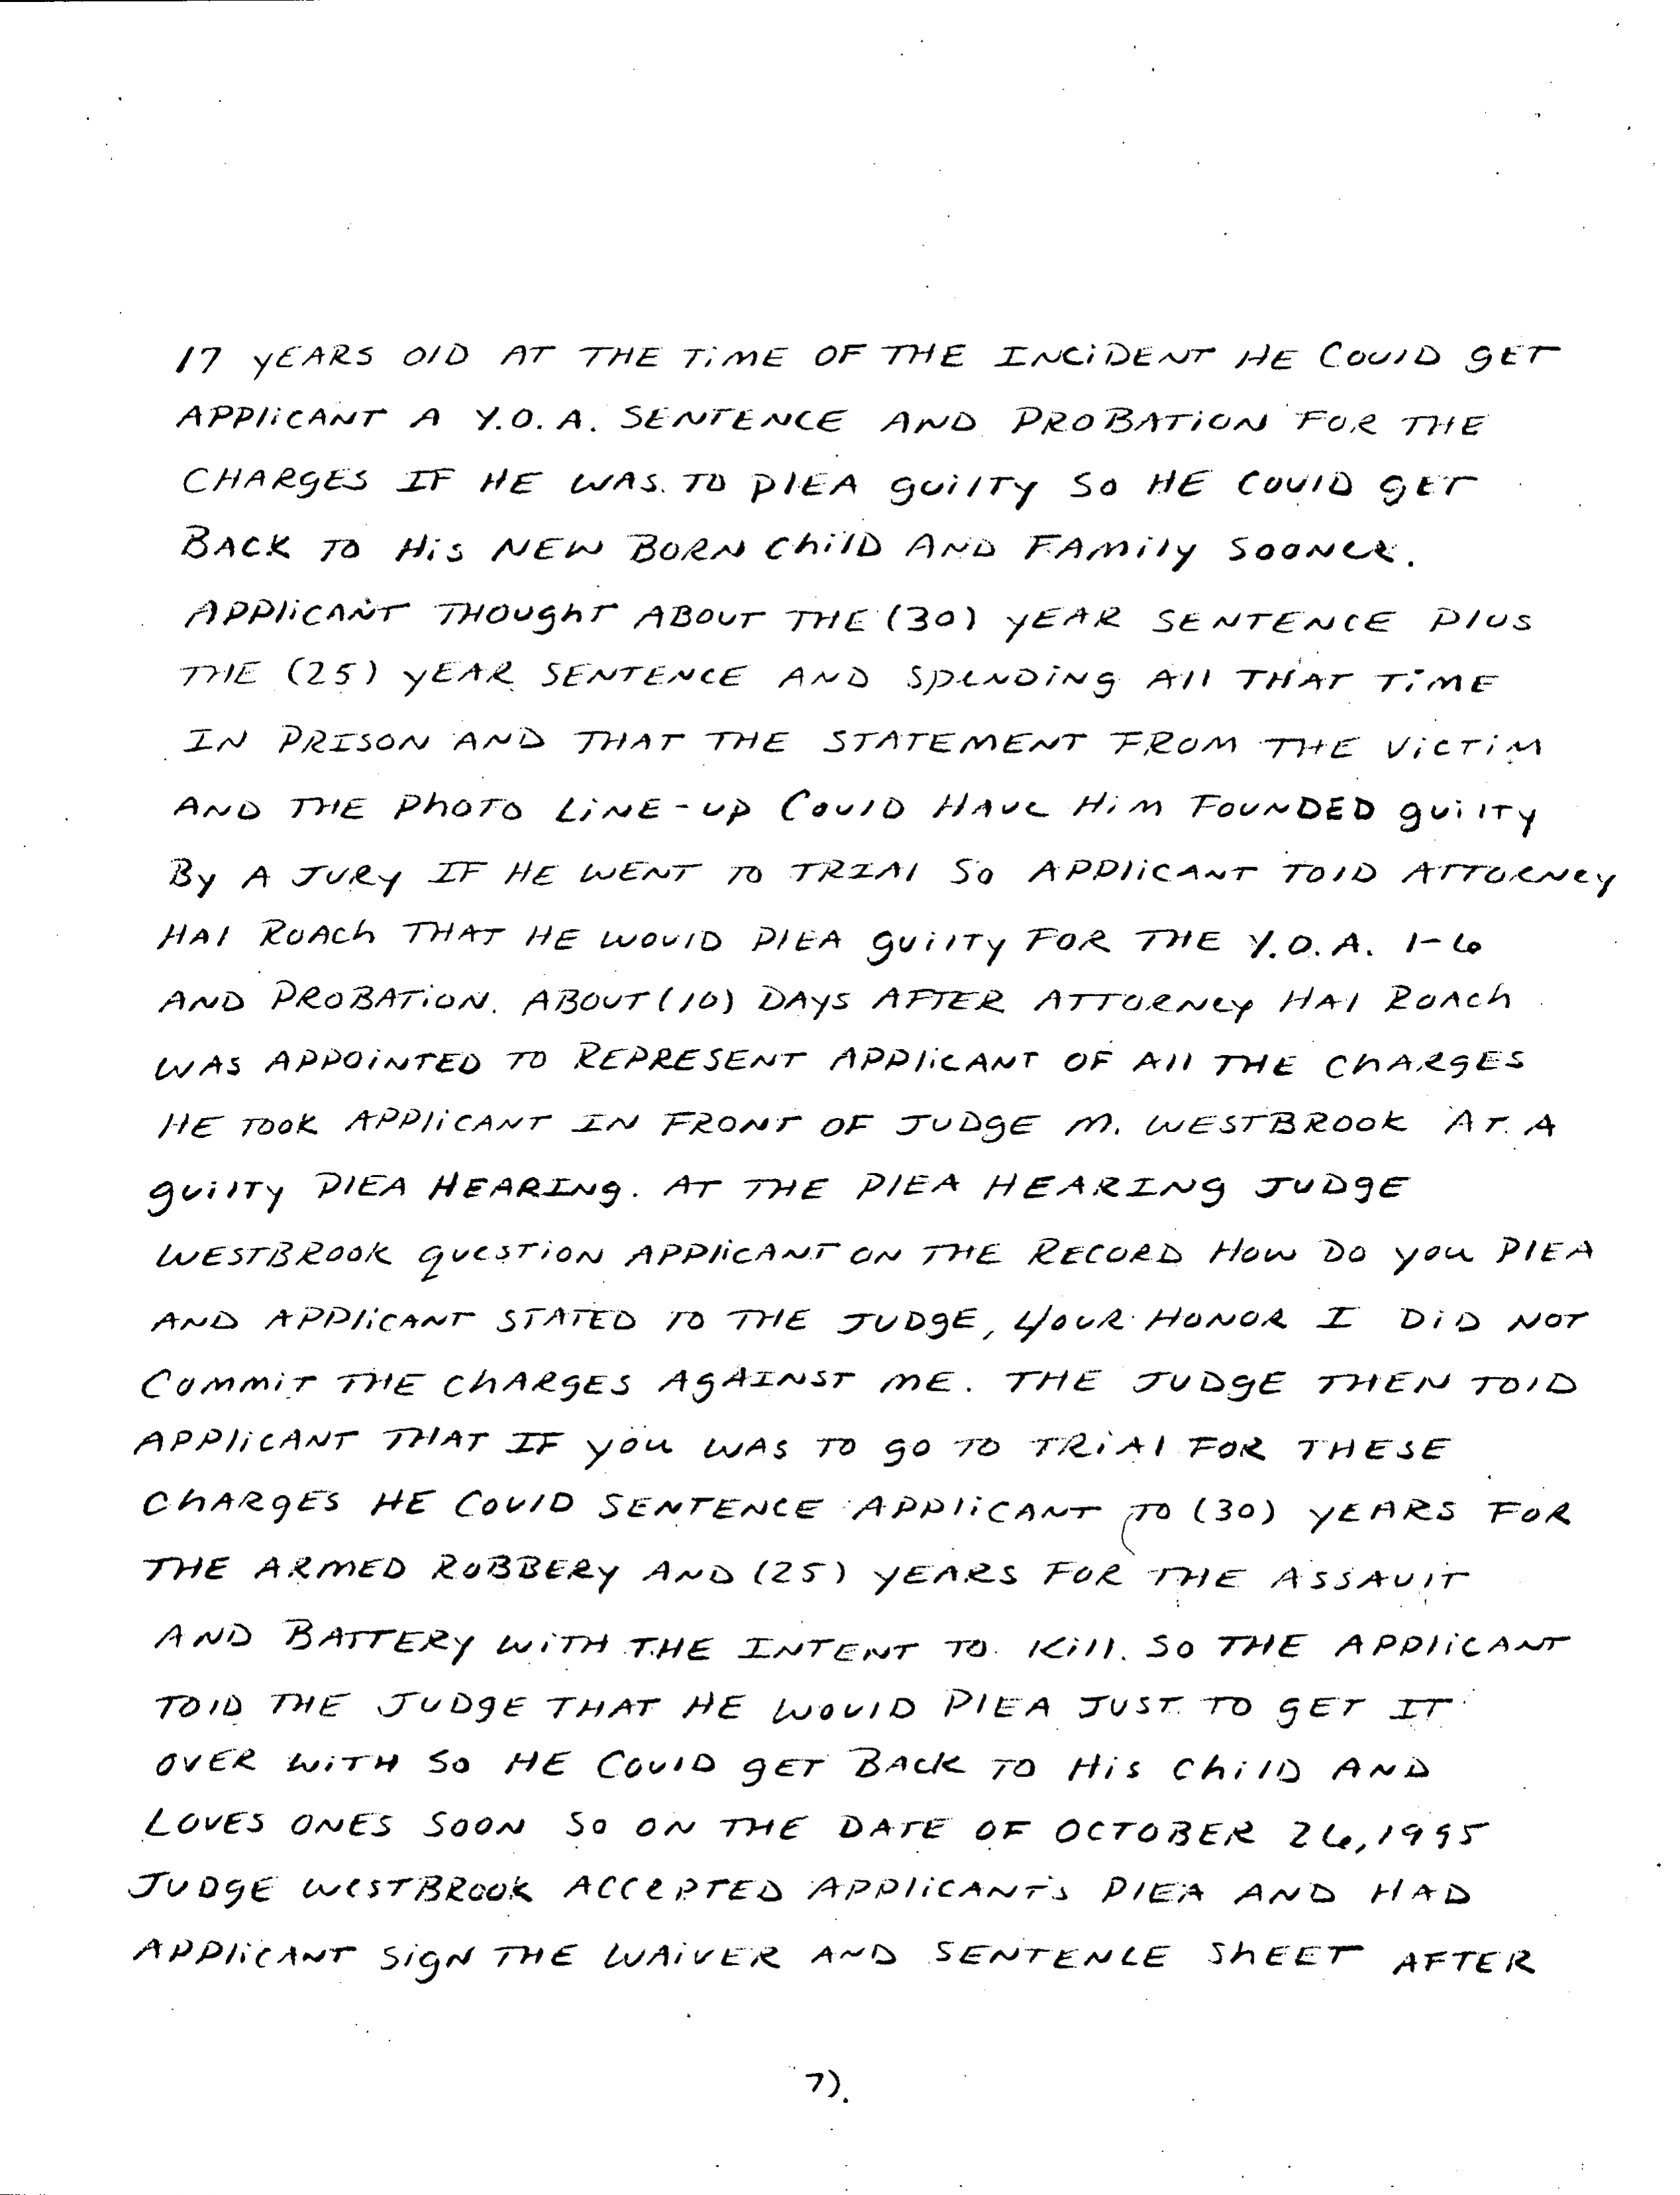 17 YEARS OlD AT THE TiME OF THE INCiDENT HE COUlD gET
APPliCANT A Y.O.A. SENTENCE AND PROBATiON FOR THE
CHARgES IF HE WAS TO PlEA guilTy SO HE COUlD gET
BACK TO His NEW BORN ChilD AND FAMily SOONER.
APPliCANT THOughT ABOUT THE (30) yEAR SENTENCE PlUS
THE (25) yEAR SENTENCE AND SpENDiNg All THAT TiME
IN PRISON AND THAT THE STATEMENT FROM THE ViCTiM
AND THE PhOTO LiNE-UP COUlD HAVE HiM FOUNDED guilTy
By A JURy IF HE WENT TO TRIAl SO APPliCANT TOlD ATTORNEy
HAl ROACh THAT HE WOUlD PlEA guilTy FOR THE Y.O.A. 1-6
AND PROBATiON. ABOUT (10) DAyS AFTER ATTORNEy HAl ROACh
WAS APPOiNTED TO REPRESENT APPliCANT OF All THE ChARgES
HE TOOK APPliCANT IN FRONT OF JUDgE M. WESTBROOK AT A
guilTy PlEA HEARINg. AT THE PlEA HEARINg JUDgE
WESTBROOK quESTiON APPliCANT ON THE RECORD HOW DO you PlEA
AND APPliCANT STATED TO THE JUDgE, YOUR HONOR I DiD NOT
COMMiT THE ChARGES AgAINST ME. THE JUDgE THEN TOlD
APPliCANT THAT IF you WAS TO gO TO TRiAl FOR THESE
ChARgES HE COUlD SENTENCE APPliCANT TO (30) yEARS FOR
THE ARMED ROBBERy AND (25) yEARS FOR THE ASSAUlT
AND BATTERy WiTH THE INTENT TO Kill. SO THE APPliCANT
TOlD THE JUDgE THAT HE WOUlD PlEA JUST TO GET IT
OVER WiTH SO HE COUlD gET BACK TO His ChilD AND
LOVES ONES SOON SO ON THE DATE OF OCTOBER 26, 1995
JUDgE WESTBROOK ACCEPTED APPliCANT'S PlEA AND HAD
APPliCANT SigN THE WAiVER AND SENTENCE ShEET AFTER
7).